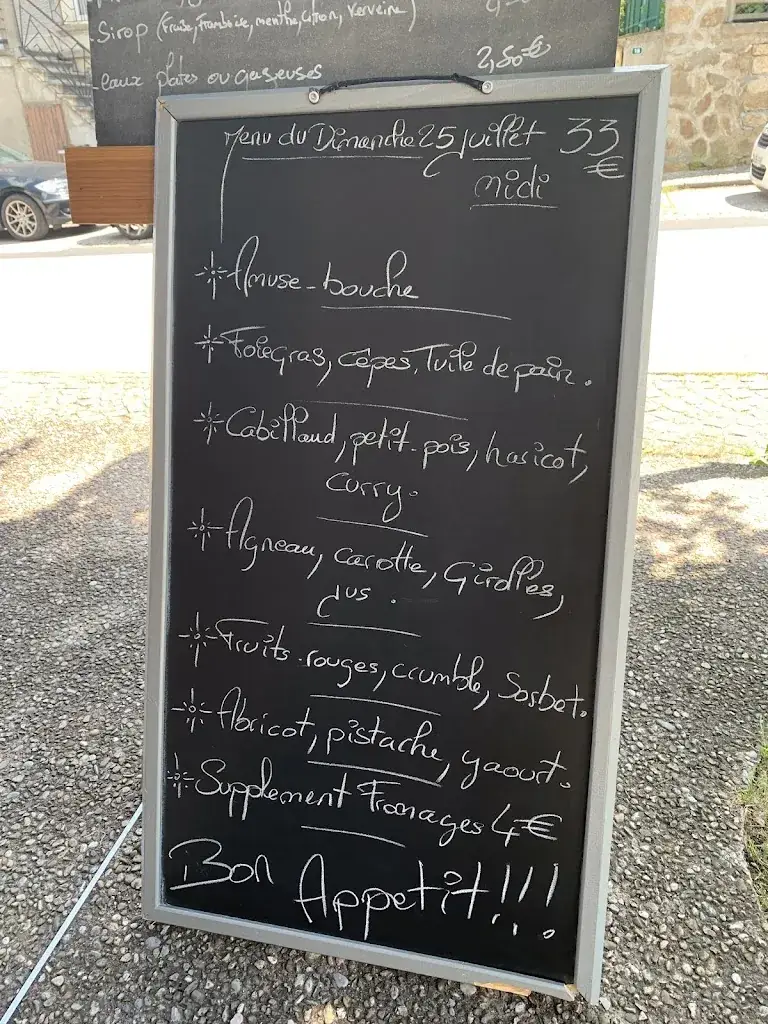 -Sirop (Fraise, Framboise, menthe, citron, Verveine)
-eaux plates ou gazeuses 2,50€
Menu du Dimanche 25 Juillet 33€
midi
Amuse-bouche
Foie gras, cêpes, Tuile de pain.
Cabillaud, petit-pois, haricot,
curry.
Agneau, carotte, Girolles,
Jus.
Fruits-rouges, crumble, Sorbet.
Abricot, pistache, yaourt.
Supplement Fromages 4€
Bon Appetit!!!